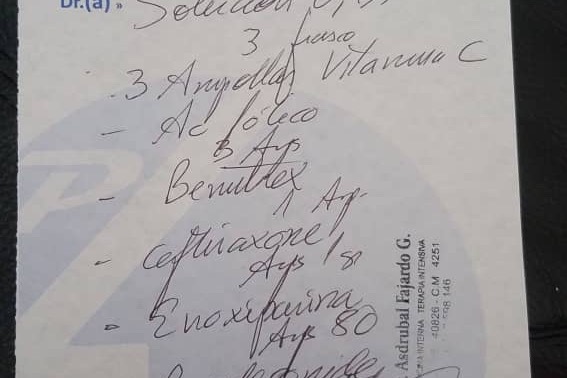 Dr.(a) »
Solución 0,9%
3 frasco
- 3 Ampollas Vitamina C
- Ac fólico
3 Ayp
- Benutrex
1 Amp.
- Ceftriaxone
Ayp 1g
- Enoxiparina
Ayp 80
Asdrubal Fajardo G.
INTERNA TERAPIA INTENSIVA
40826 - C.M 4251
598 146